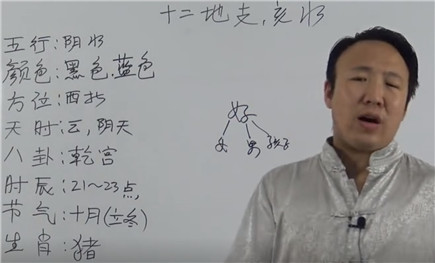 十二地支,亥水
五行:阴水
颜色:黑色,蓝色
方位:西北
天时:云,阴天
八卦:乾宫
时辰:21~23点
节气:十月(立冬)
生肖:猪
好
女 男 孩子